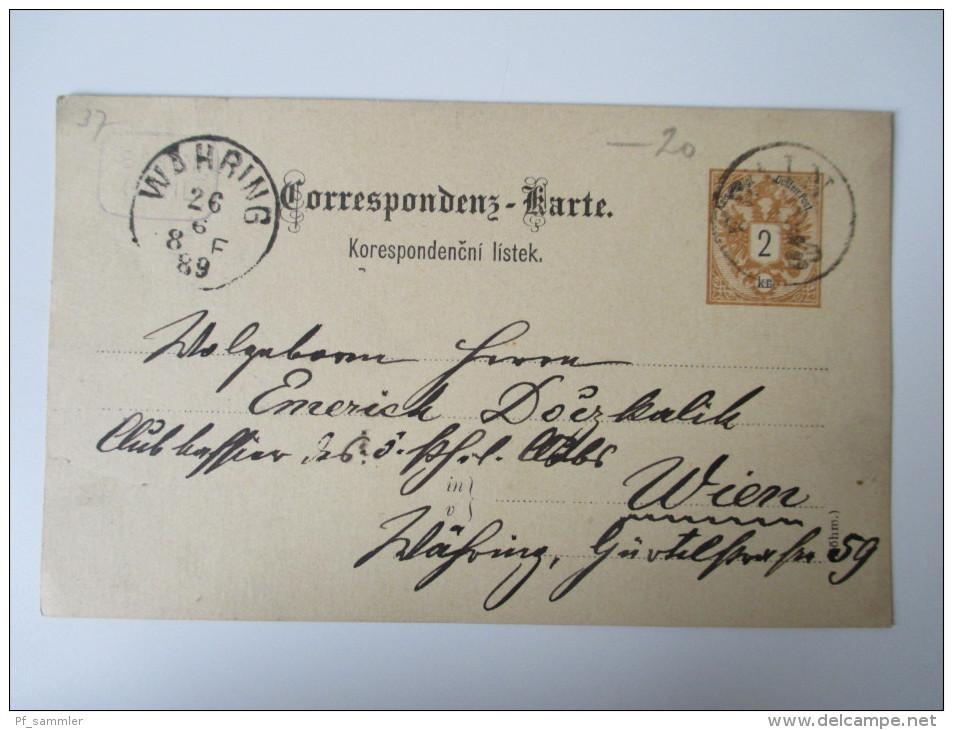 37
—20
WÄHRING
26
6
8 F
89
Correspondenz-Karte.
Korespondenční lístek.
2
kr.
Wolgeborn Herrn
Emerich Dočzkalik
Clubkassier des ö. Phil. Clubs
in
v
Wien
Währing, Gürtelstrasse 59
Pf_sammler
http://www.delcampe.net